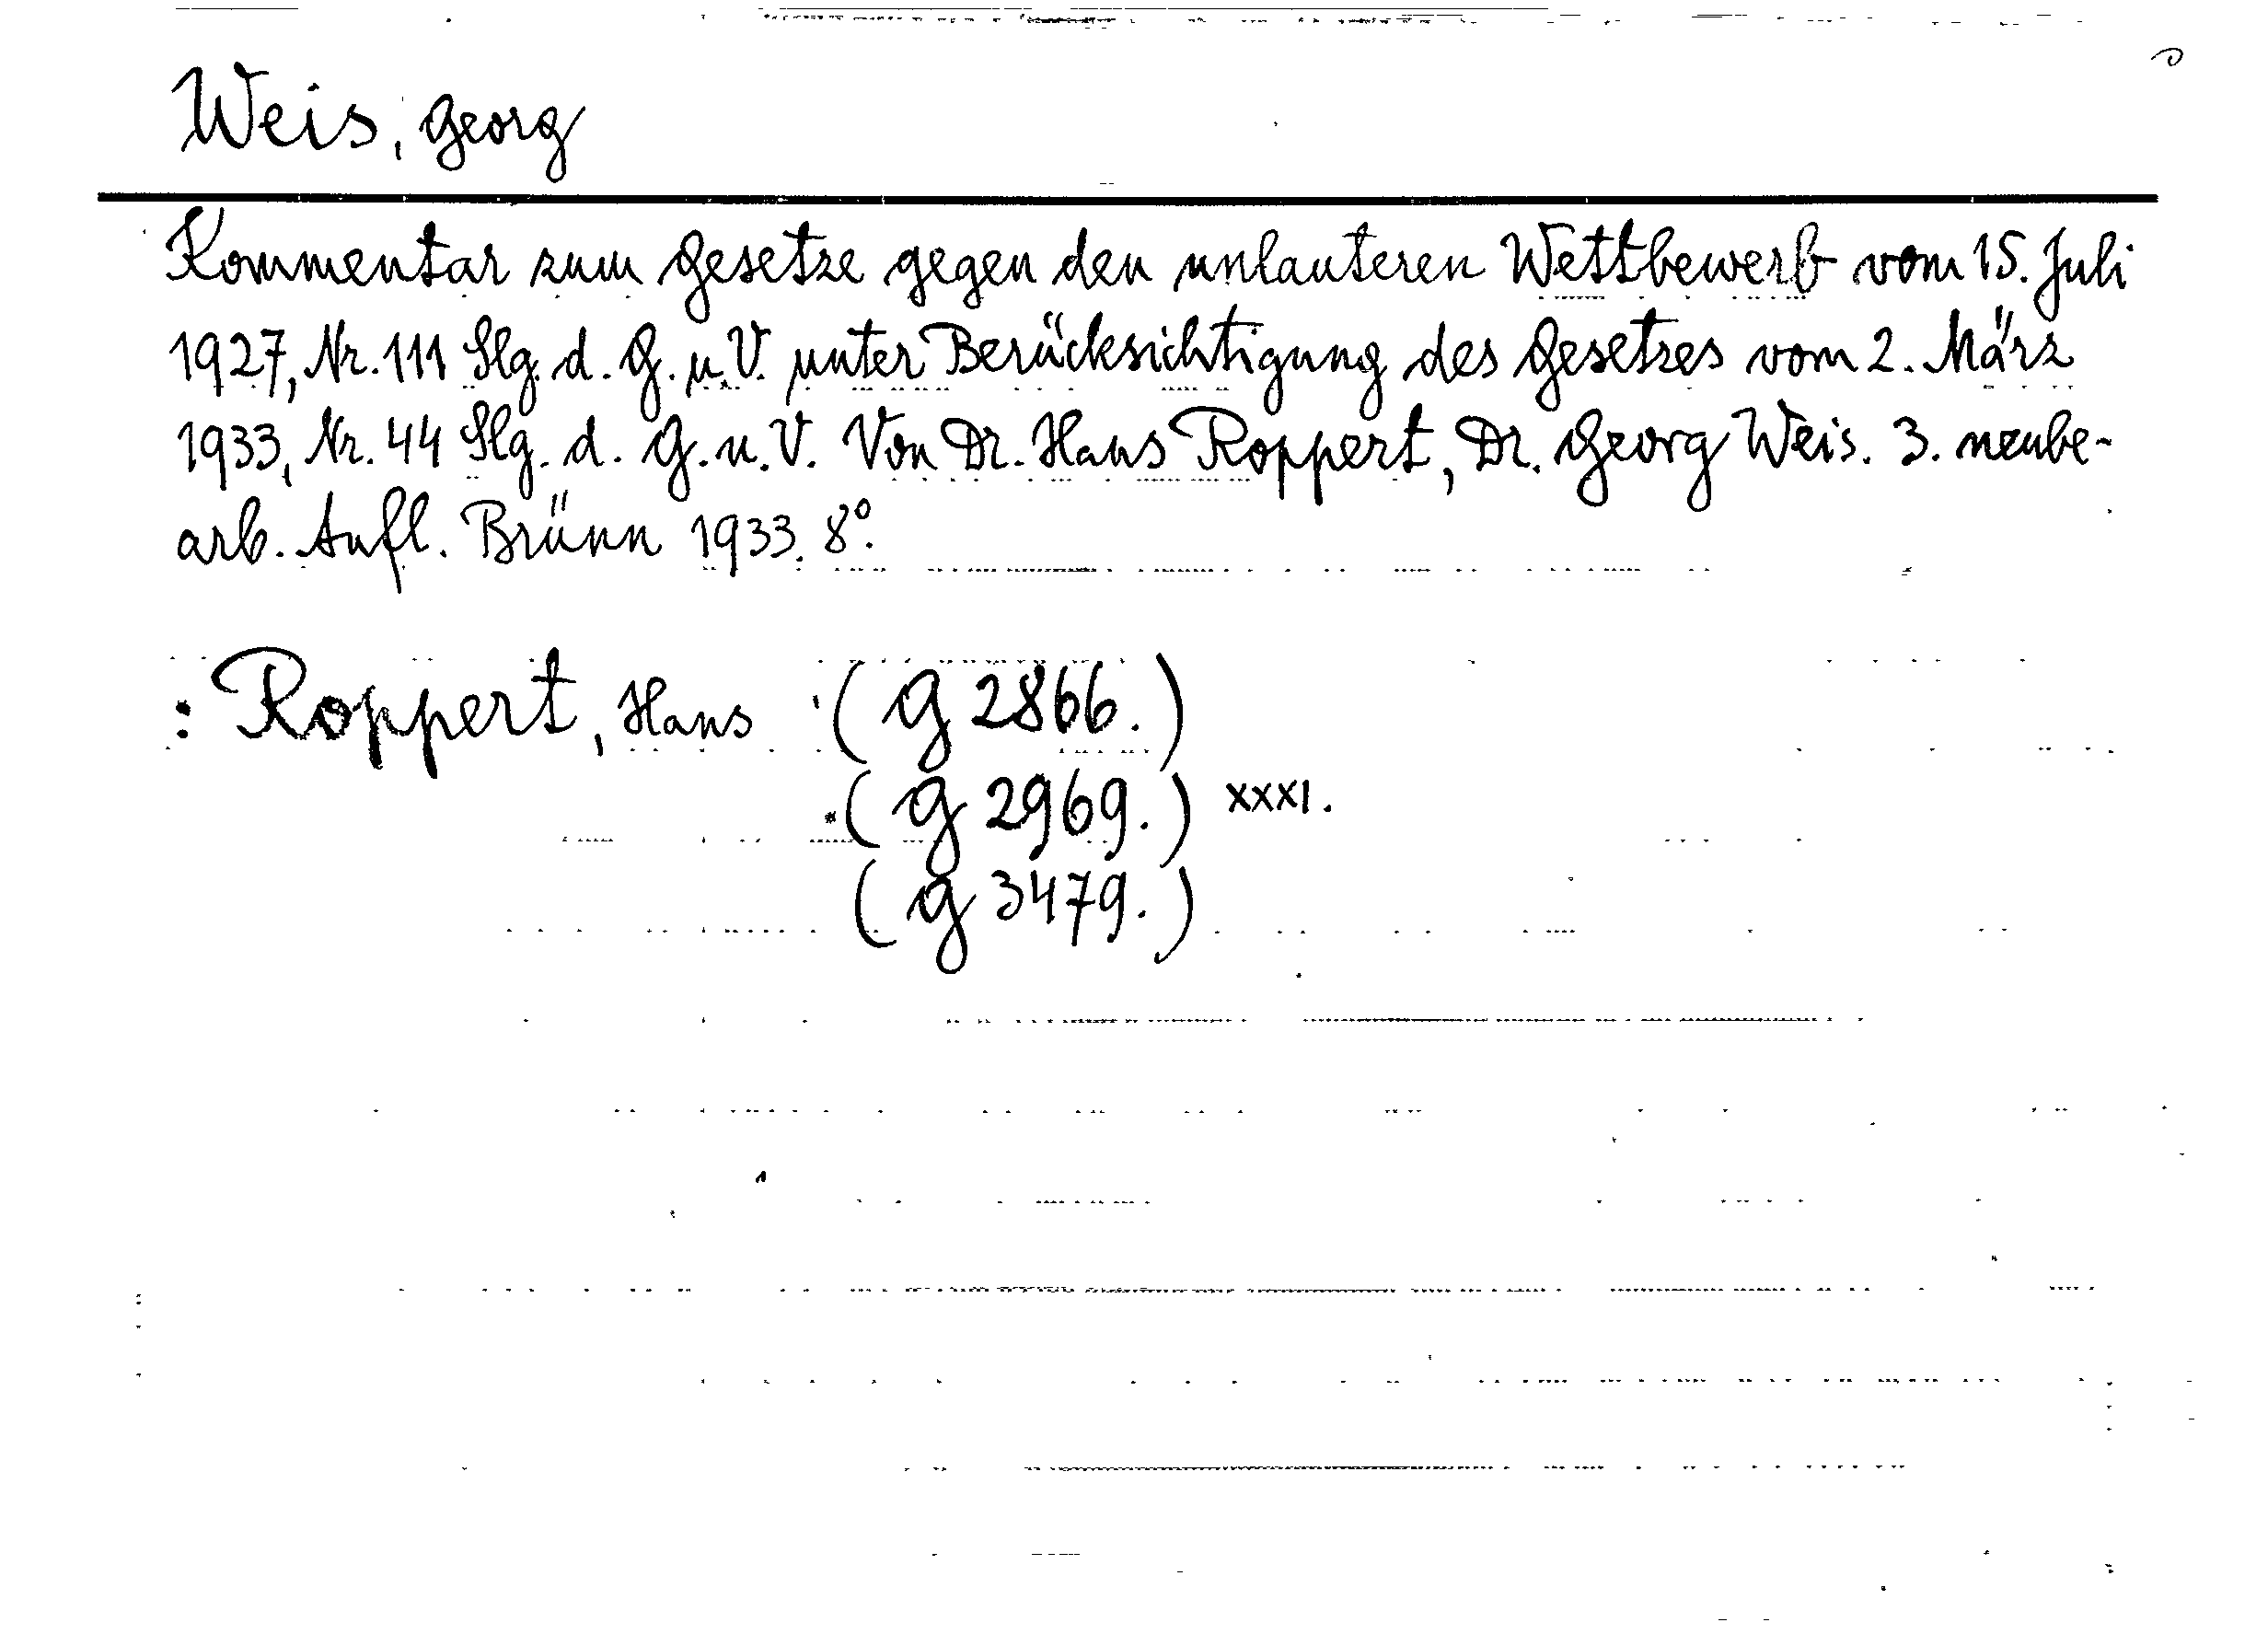 Weis, Georg
Kommentar zum Gesetze gegen den unlauteren Wettbewerb vom 15. Juli
1927, Nr. 111 Slg. d. G. u. V. unter Berücksichtigung des Gesetzes vom 2. März
1933, Nr. 44 Slg. d. G. u. V. Von Dr. Hans Roppert, Dr. Georg Weis. 3. neube-
arb. Aufl. Brünn 1933. 8°.
: Roppert, Hans (G 2866.)
(G 2969.) XXXI.
(G 3479.)